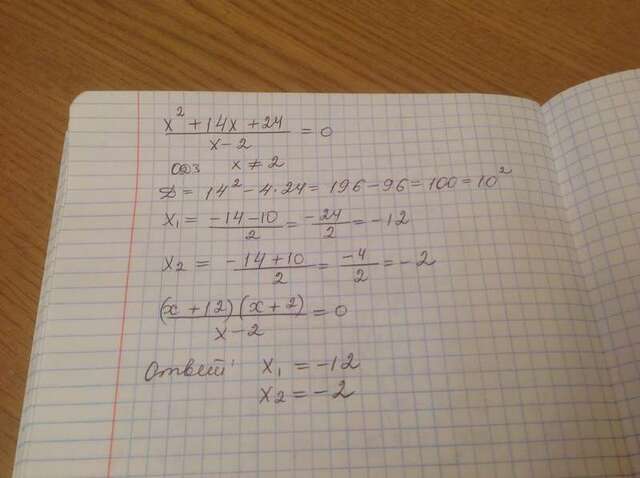 x² + 14x + 24 / x - 2 = 0
одз x ≠ 2
D = 14² - 4 · 24 = 196 - 96 = 100 = 10²
x₁ = -14 - 10 / 2 = -24 / 2 = -12
x₂ = -14 + 10 / 2 = -4 / 2 = -2
(x + 12)(x + 2) / x - 2 = 0
Ответ: x₁ = -12
x₂ = -2